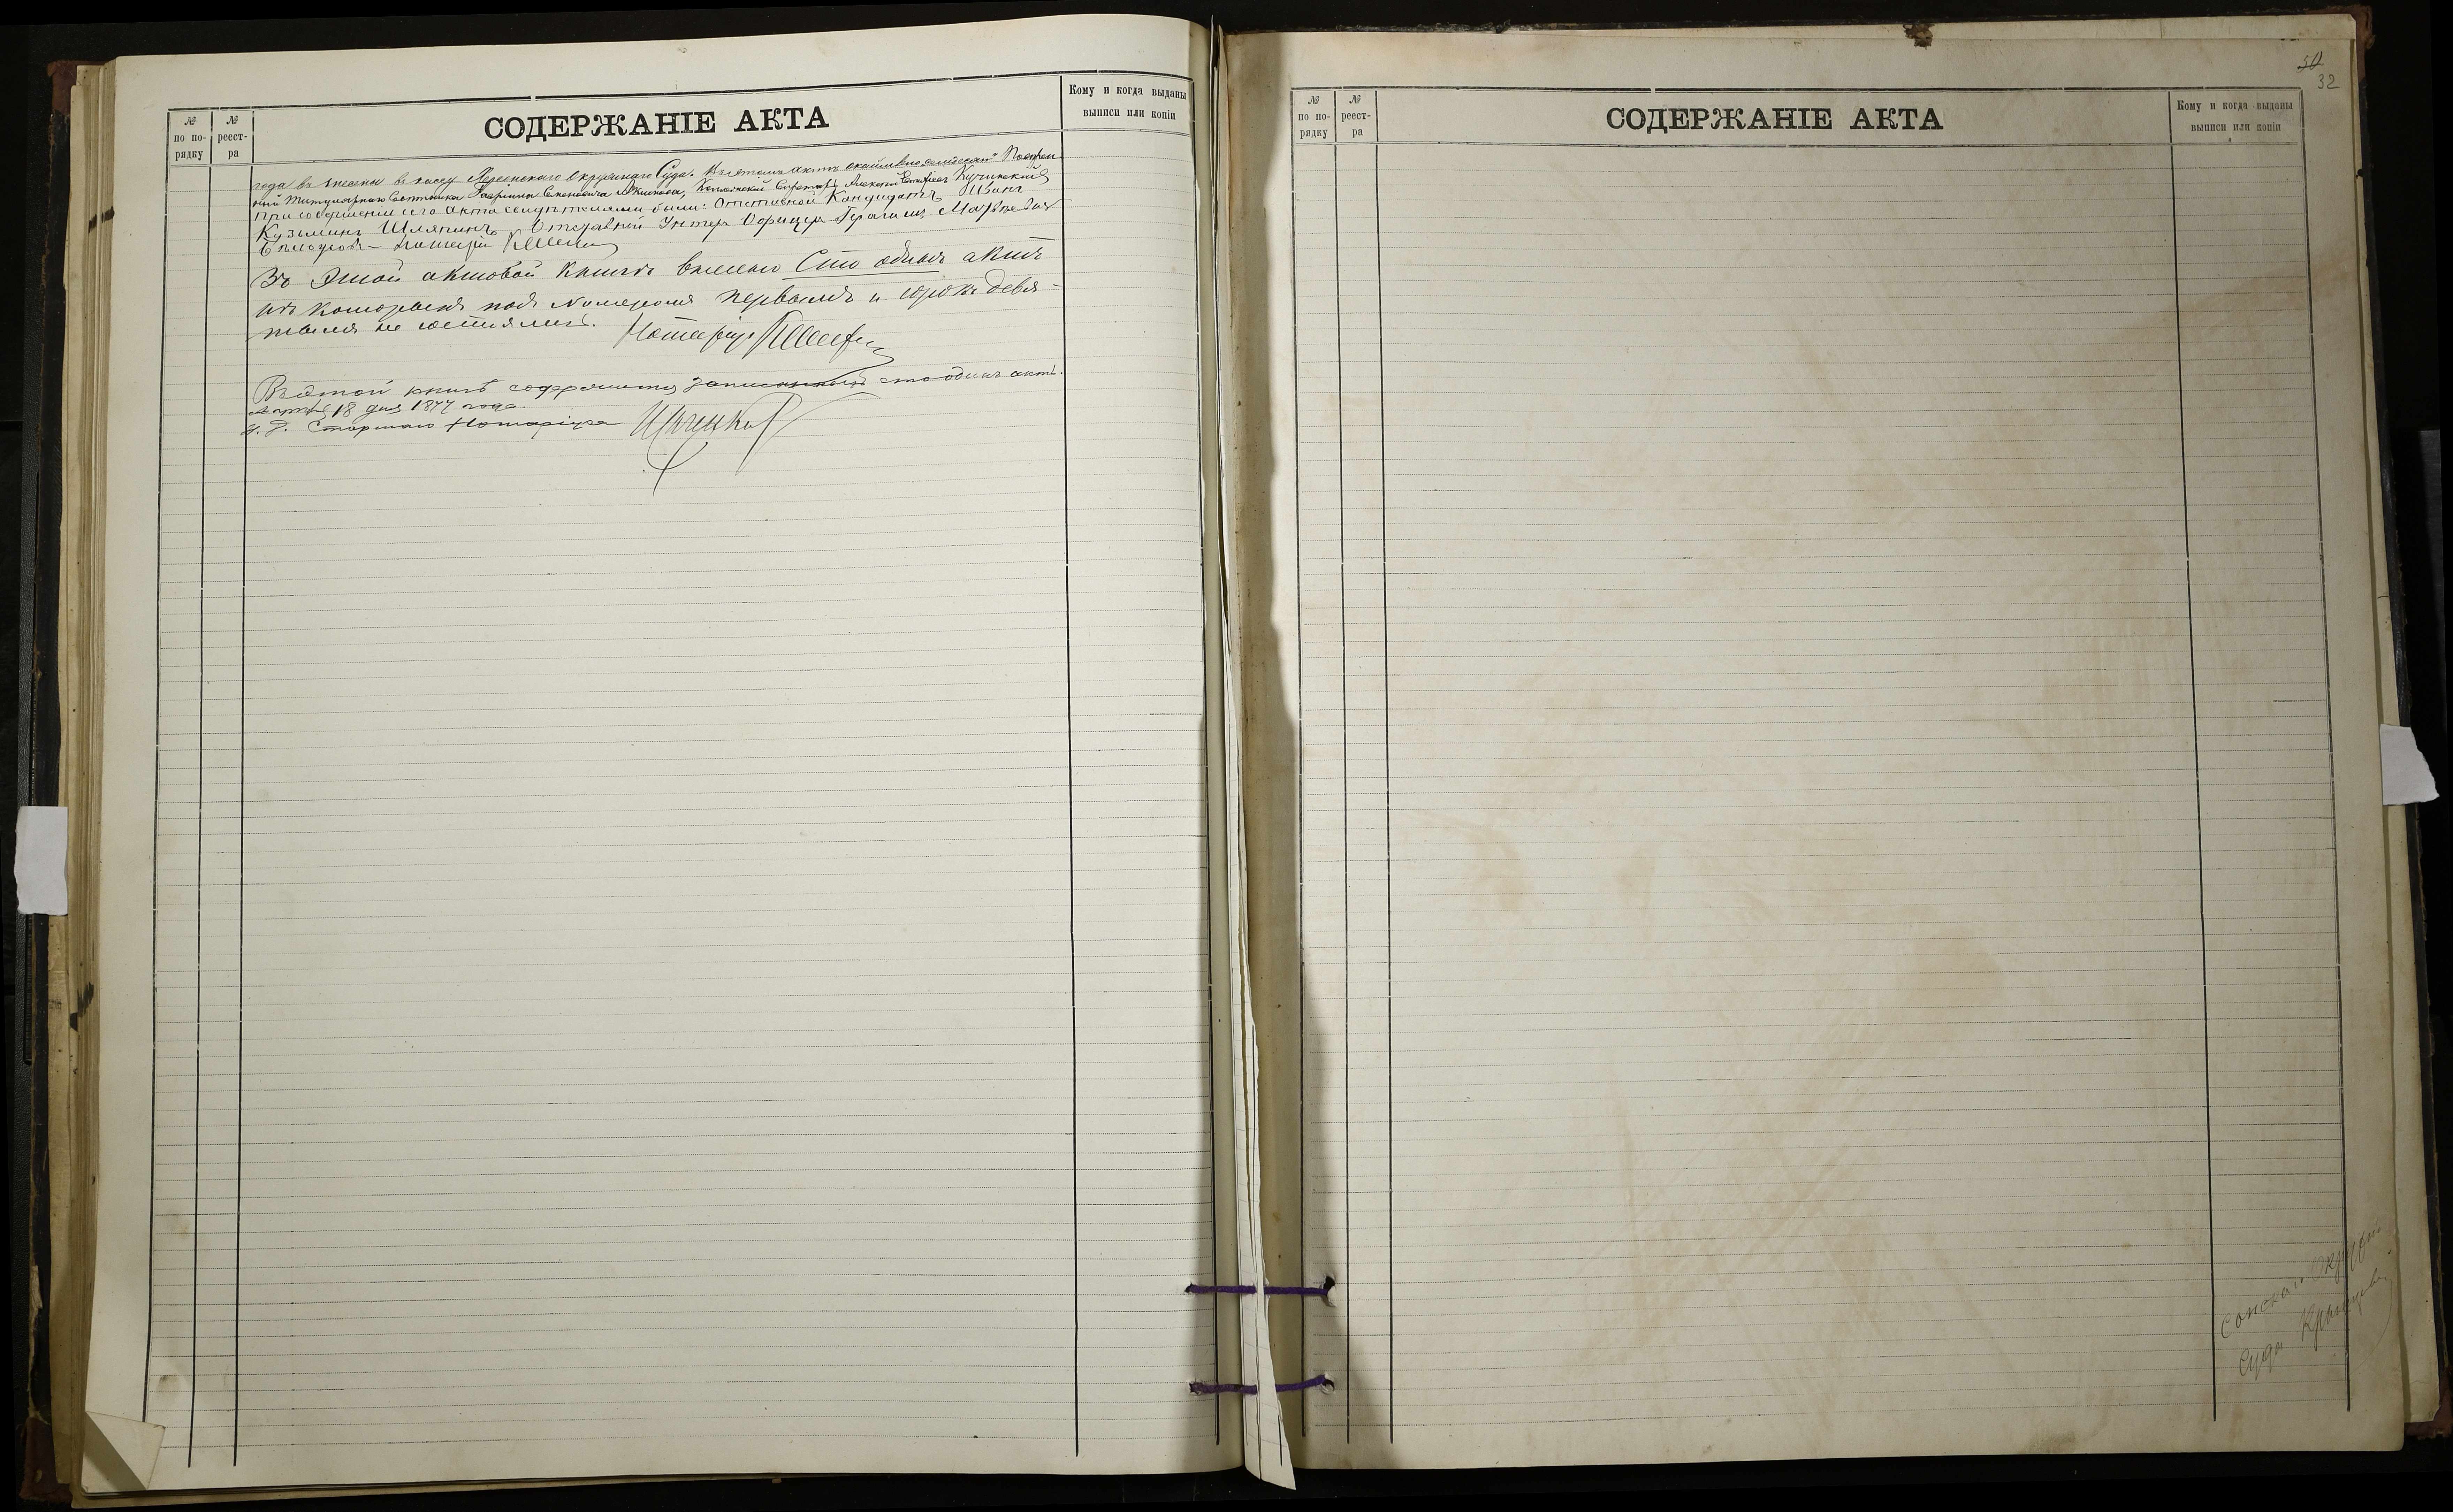 № по по-рядку
№ реест-ра
СОДЕРЖАНІЕ АКТА
Кому и когда выданы
выписи или копіи
года въ внесены въ кассу Херсонскаго Окружнаго Суда. Въ этомъ актѣ
ный Титулярнаго Совѣтника Коллежскій Секретарь Алексѣй Кучинскій
При совершеніи сего акта свидѣтелями были: Отставной Кандидатъ Иванъ
Кузьминъ Шляпинъ, Отставной Унтеръ Офицеръ Герасимъ Матвѣевъ
Нотаріусъ
Въ этой актовой книгѣ всего Сто одинъ актъ
изъ которыхъ подъ номеромъ первымъ и сорокъ девя-
тымъ не состоялись. Нотаріусъ
Въ этой книгѣ содержится записанныхъ сто одинъ актъ.
Марта 18 дня 1877 года.
И. д. Старшаго Нотаріуса
50
32
№ по по-рядку
№ реест-ра
СОДЕРЖАНІЕ АКТА
Кому и когда выданы
выписи или копіи
сонскаго Окруж
Суда